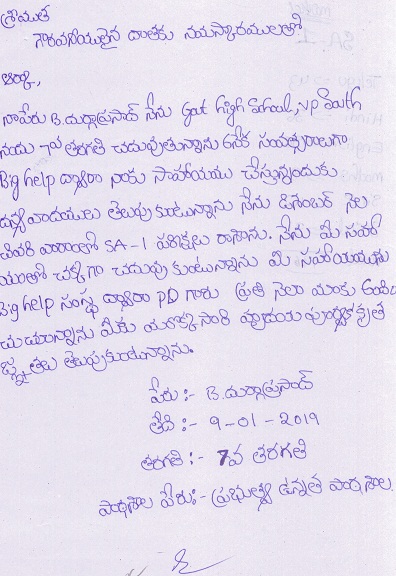 శ్రీమత
గౌరవనీయులైన దాతకు నమస్కారములతో
నాపేరు B.దుర్గాప్రసాద్ నేను Govt high School, VP South
నందు 7వ తరగతి చదువుతున్నాను సంవత్సరాలుగా
Big help ద్వారా నాకు సాహాయము చేస్తున్నందుకు
ధన్యవాదములు తెలుపుకుంటున్నాను నేను డిసెంబర్ నెల
చివరి వారంలో SA-1 పరీక్షలు రాసాను. నేను మీ సహా
యంతో చక్కగా చదువుకుంటున్నాను మీ సహాయమును
Big help సంస్థ ద్వారా PD గారు ప్రతి నెలా మాకు అందిం
చుచున్నాను మీకు మరొక్కసారి హృదయపూర్వక కృత
జ్ఞతలు తెలుపుకుంటున్నాను.
పేరు :- B.దుర్గాప్రసాద్
తేది :- 9-01-2019
తరగతి :- 7వ తరగతి
పాఠశాల పేరు:- ప్రభుత్వ ఉన్నత పాఠశాల.